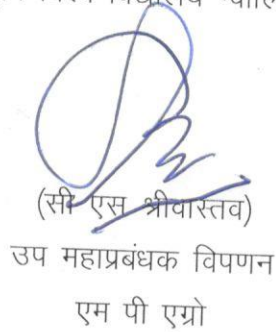 (सी एस श्रीवास्तव)
उप महाप्रबंधक विपणन
एम पी एग्रो